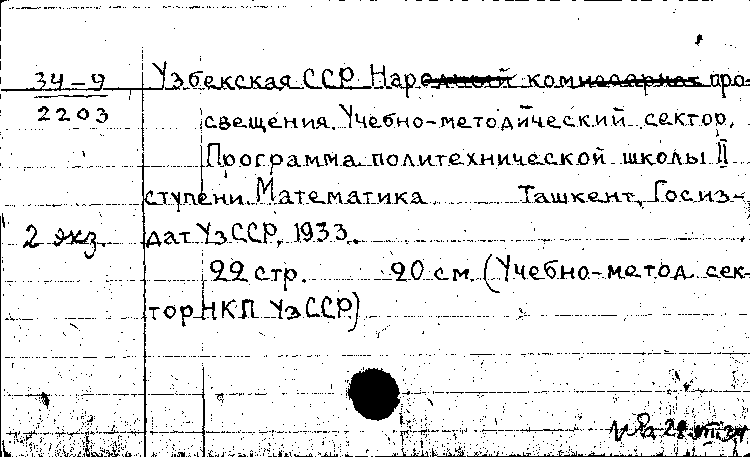 34-9
2203
Узбекская ССР. Народный комиссариат про-
свещения. Учебно-методический сектор.
Программа политехнической школы II
ступени. Математика Ташкент, Госиз-
2 экз.
дат УзССР, 1933.
22 стр. 20 см. (Учебно-метод. сек-
тор НКП УзССР)